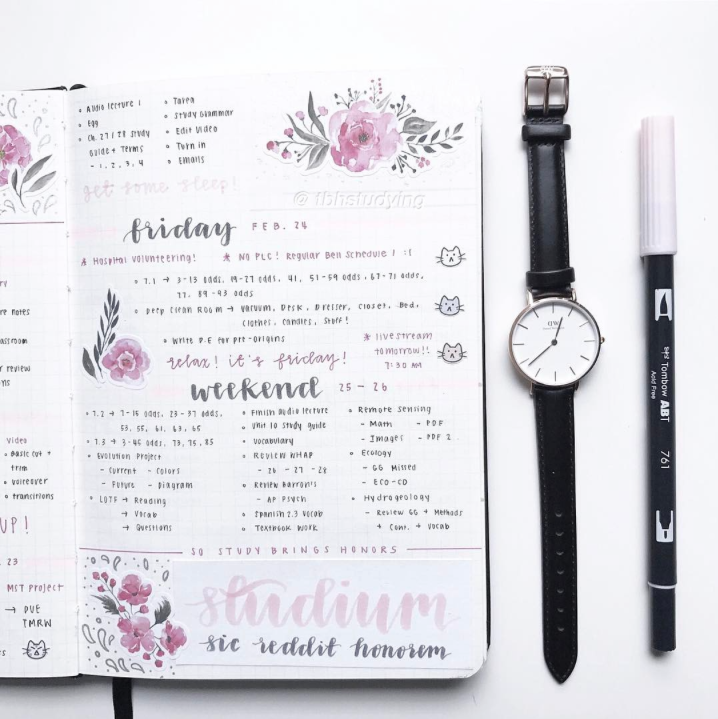 Audio lecture 1
Egg
Ch. 27/28 Study
Guide + Terms
- 1, 2, 3, 4
Tarea
Study Grammar
Edit Video
Turn in
Emails
get some sleep!
@tbhstudying
friday FEB. 24
* Hospital Volunteering! * NO PLC! Regular Bell Schedule! :(
7.1 → 3-13 odds, 19-27 odds, 41, 51-59 odds, 67-71 odds,
77, 89-93 odds
Deep Clean Room → Vacuum, Desk, Dresser, Closet, Bed,
Clothes, Candles, Stuff!
Write P.E for Pre-origins
* livestream
tomorrow!!
7:30 AM
relax! it's friday!
weekend 25-26
7.2 → 7-15 odds, 23-37 odds,
53, 55, 61, 63, 65
7.3 → 3-45 odds, 73, 75, 85
Evolution Project
- Current - Colors
- Future - Diagram
LOTF → Reading
→ Vocab
→ Questions
Finish Audio Lecture
Unit 10 Study Guide
Vocabulary
Review WHAP
- 26 - 27 - 28
Review Barron's
- AP Psych
Spanish 2.3 Vocab
Textbook Work
Remote Sensing
- Math - PDF
- Images - PDF 2
Ecology
- GG Missed
- ECO-CD
Hydrogeology
- Review GG + Methods
+ Cont. + Vocab
SO STUDY BRINGS HONORS
studium
sic reddit honorem
re notes
review
Video
Basic cut +
trim
voiceover
transitions
UP!
23
MST Project
→ DUE
TMRW
DW
Tombow ABT
Acid Free
761